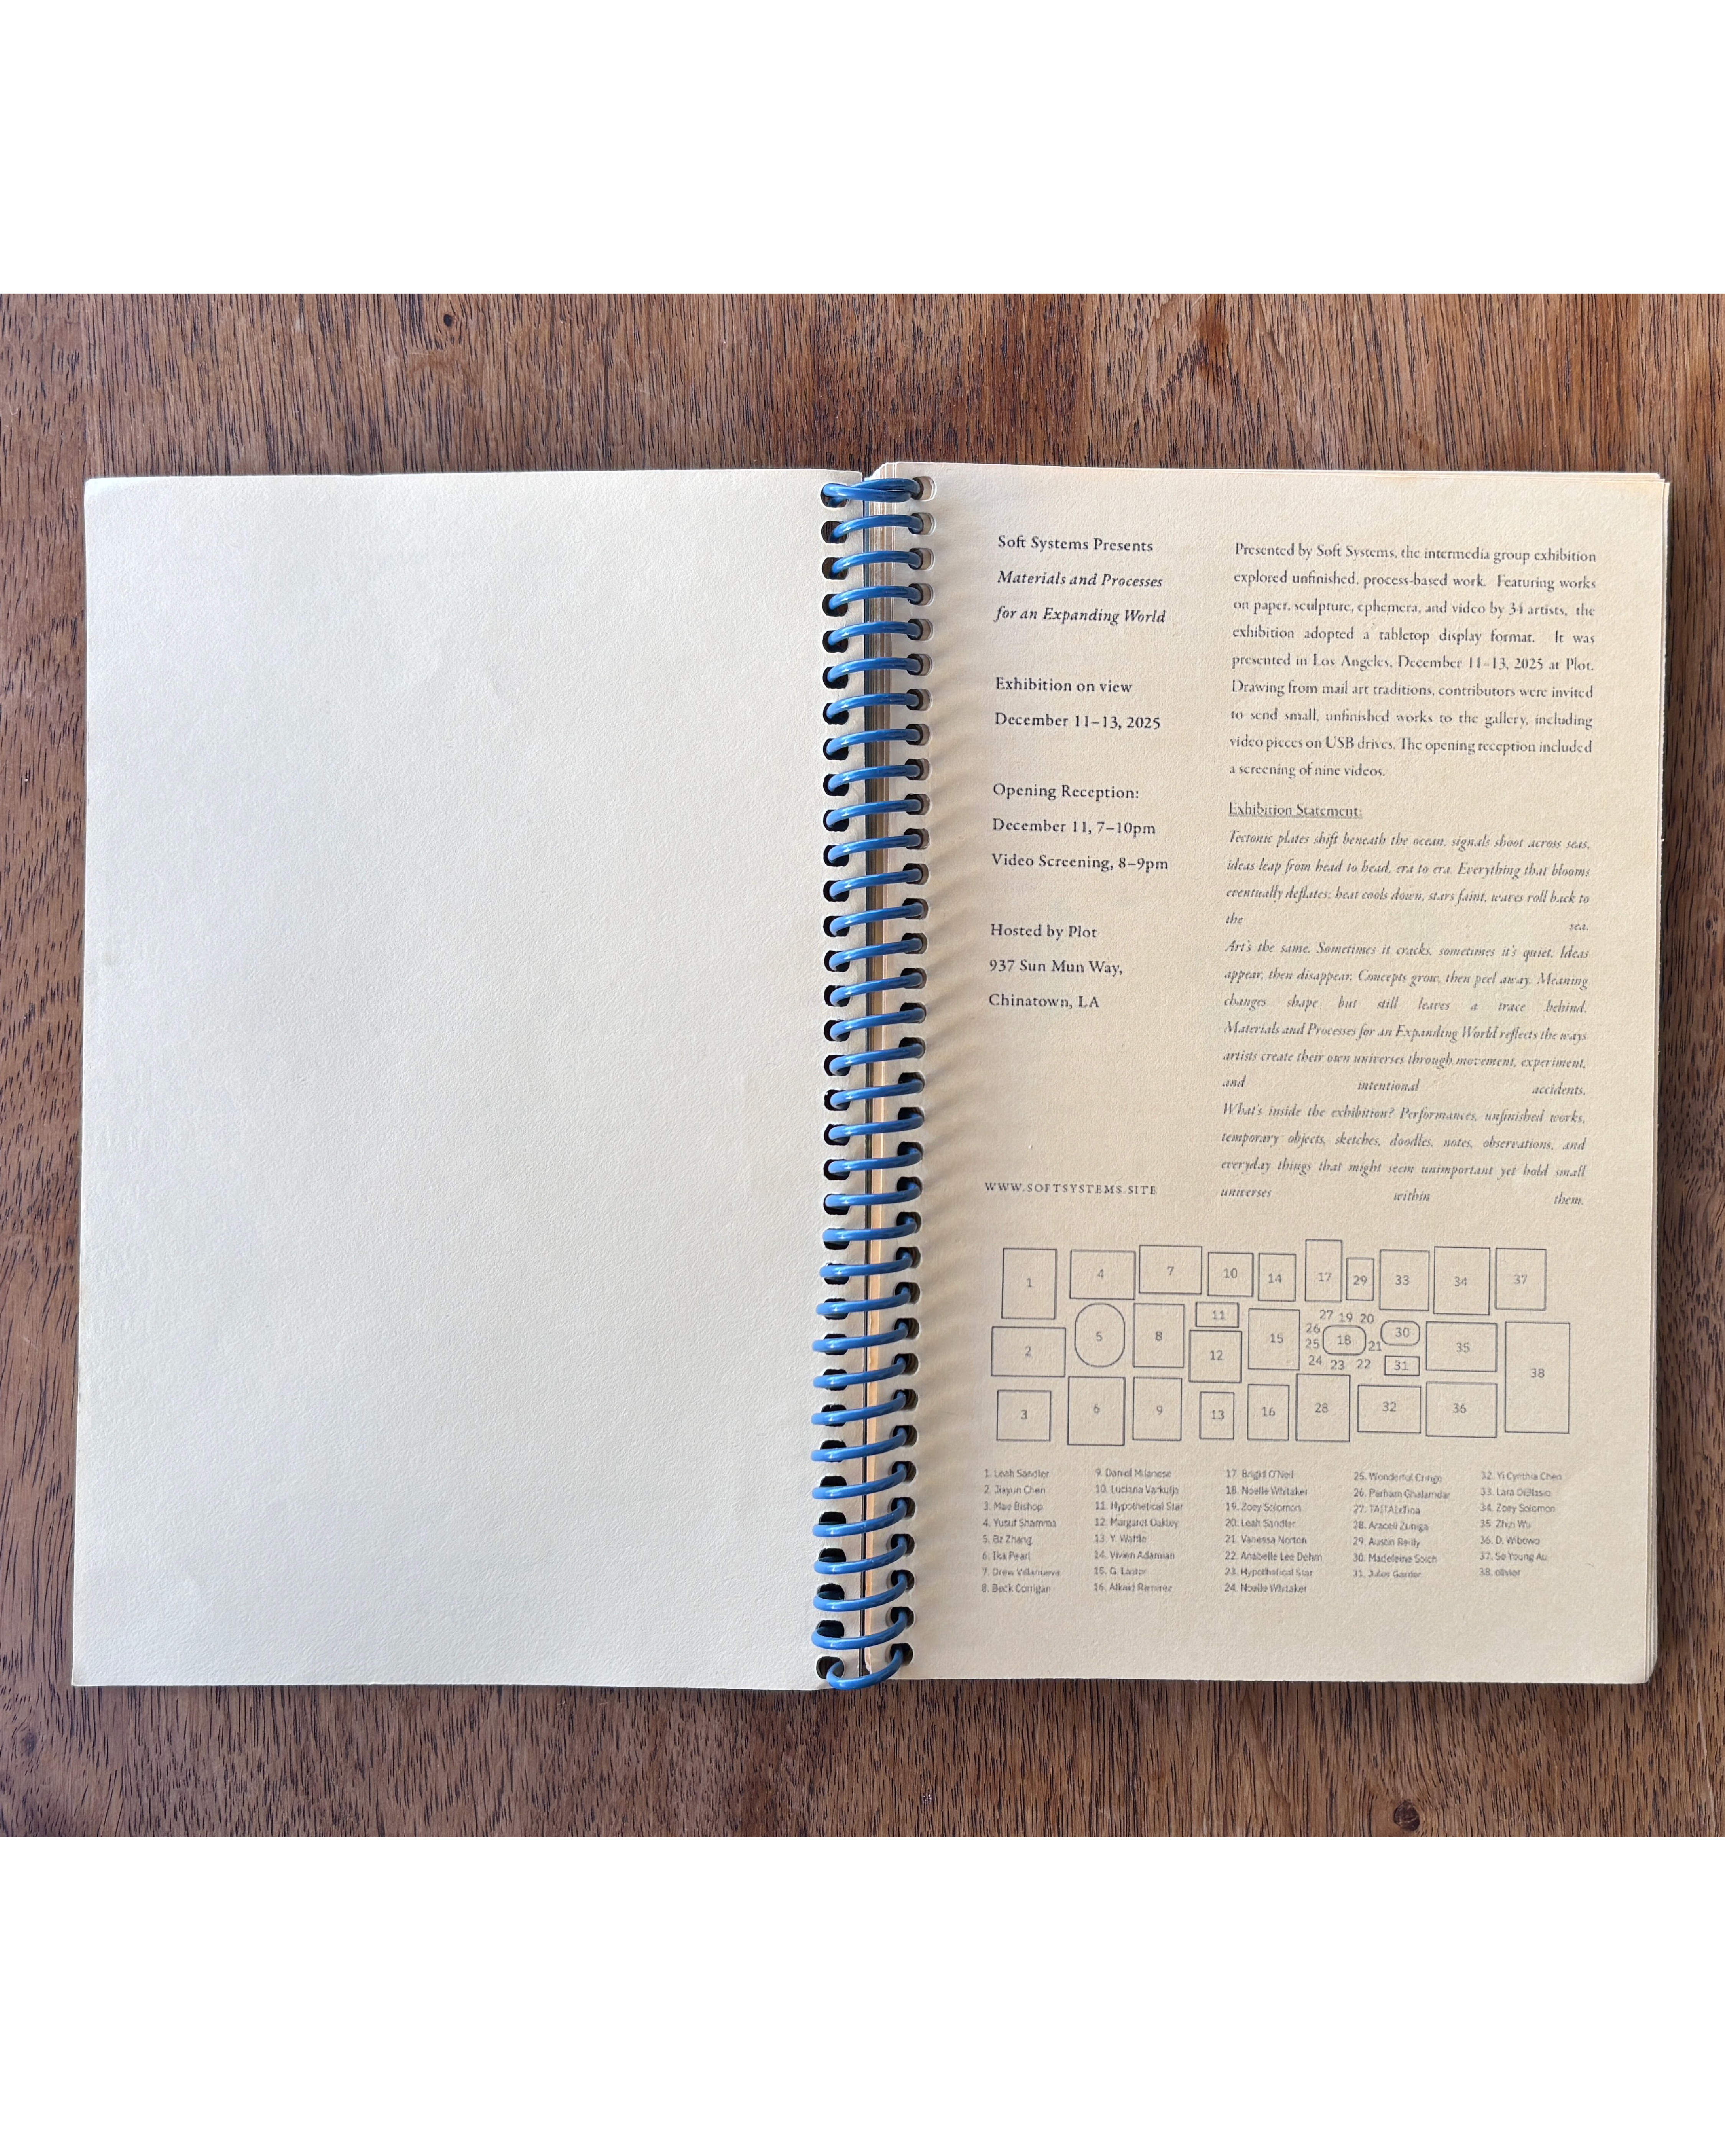 Soft Systems Presents
Materials and Processes
for an Expanding World
Exhibition on view
December 11–13, 2025
Opening Reception:
December 11, 7–10pm
Video Screening, 8–9pm
Hosted by Plot
937 Sun Mun Way,
Chinatown, LA
WWW.SOFTSYSTEMS.SITE
Presented by Soft Systems, the intermedia group exhibition
explored unfinished, process-based work. Featuring works
on paper, sculpture, ephemera, and video by 34 artists, the
exhibition adopted a tabletop display format. It was
presented in Los Angeles, December 11–13, 2025 at Plot.
Drawing from mail art traditions, contributors were invited
to send small, unfinished works to the gallery, including
video pieces on USB drives. The opening reception included
a screening of nine videos.
Exhibition Statement:
Tectonic plates shift beneath the ocean, signals shoot across seas,
ideas leap from head to head, era to era. Everything that blooms
eventually deflates; heat cools down, stars faint, waves roll back to
the sea.
Art's the same. Sometimes it cracks, sometimes it's quiet. Ideas
appear, then disappear. Concepts grow, then peel away. Meaning
changes shape but still leaves a trace behind.
Materials and Processes for an Expanding World reflects the ways
artists create their own universes through movement, experiment,
and intentional accidents.
What's inside the exhibition? Performances, unfinished works,
temporary objects, sketches, doodles, notes, observations, and
everyday things that might seem unimportant yet hold small
universes within them.
1 4 7 10 14 17 29 33 34 37
2 5 8 11 12 15 27 19 20 26 25 18 21 24 23 22 30 31 35 38
3 6 9 13 16 28 32 36
1. Leah Sandler
2. Jiayun Chen
3. Mae Bishop
4. Yusuf Shamma
5. Bz Zhang
6. Ika Pearl
7. Drew Villanueva
8. Beck Corrigan
9. Daniel Milanese
10. Luciana Varkulja
11. Hypothetical Star
12. Margaret Oakley
13. Y. Waffle
14. Vivien Adamian
15. G.
16. Ramirez
17. Brigid O'Neil
18. Noelle Whitaker
19. Zoey Solomon
20. Leah Sandler
21. Vanessa Norton
22. Anabelle Lee Dehm
23. Hypothetical Star
24. Noelle Whitaker
25. Wonderful Cringe
26. Parham Ghalamdar
27.
28. Araceli Zuniga
29. Austin Reilly
30. Madeleine
31. Jules
32. Yi Cynthia Chen
33. Lara DiBlasio
34. Zoey Solomon
35. Zhen Wu
36. D. Wibowo
37. So Young Au
38. olivier